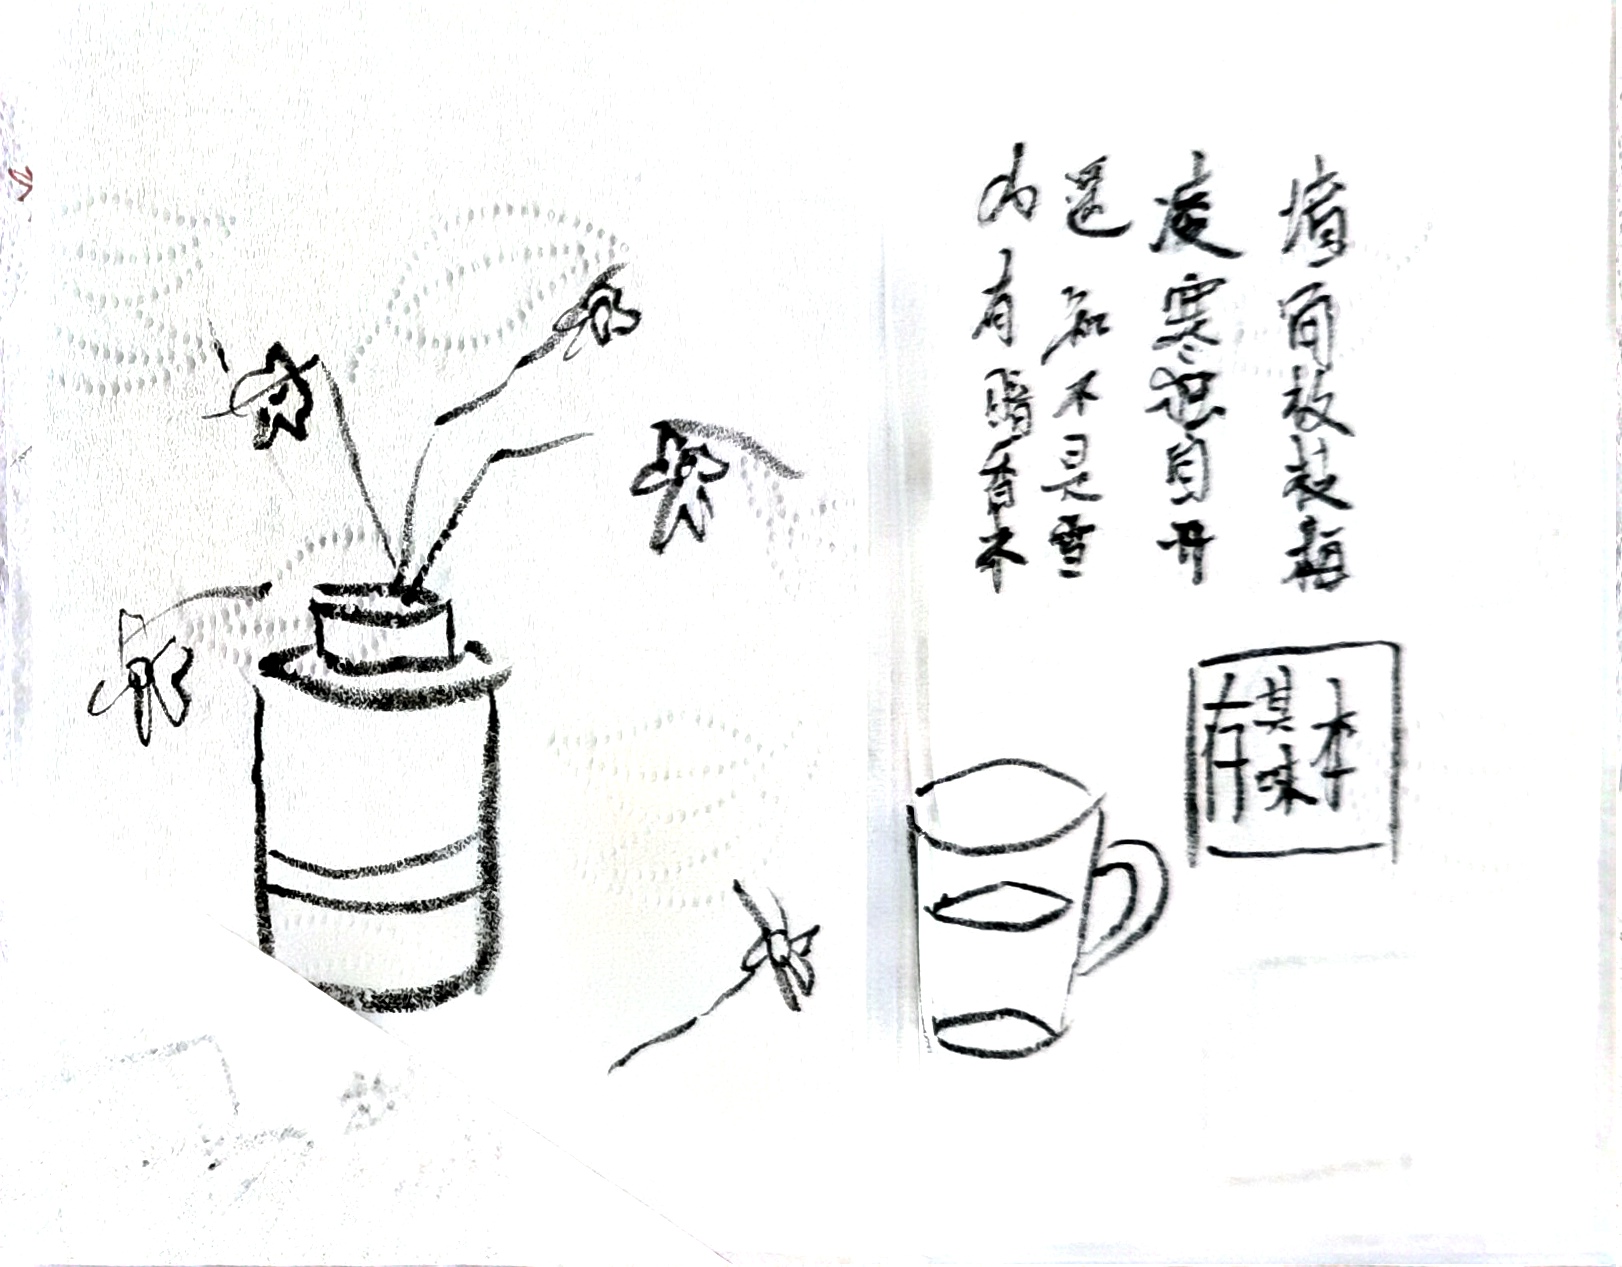 墙角数枝梅
凌寒独自开
遥知不是雪
为有暗香来
存其本味